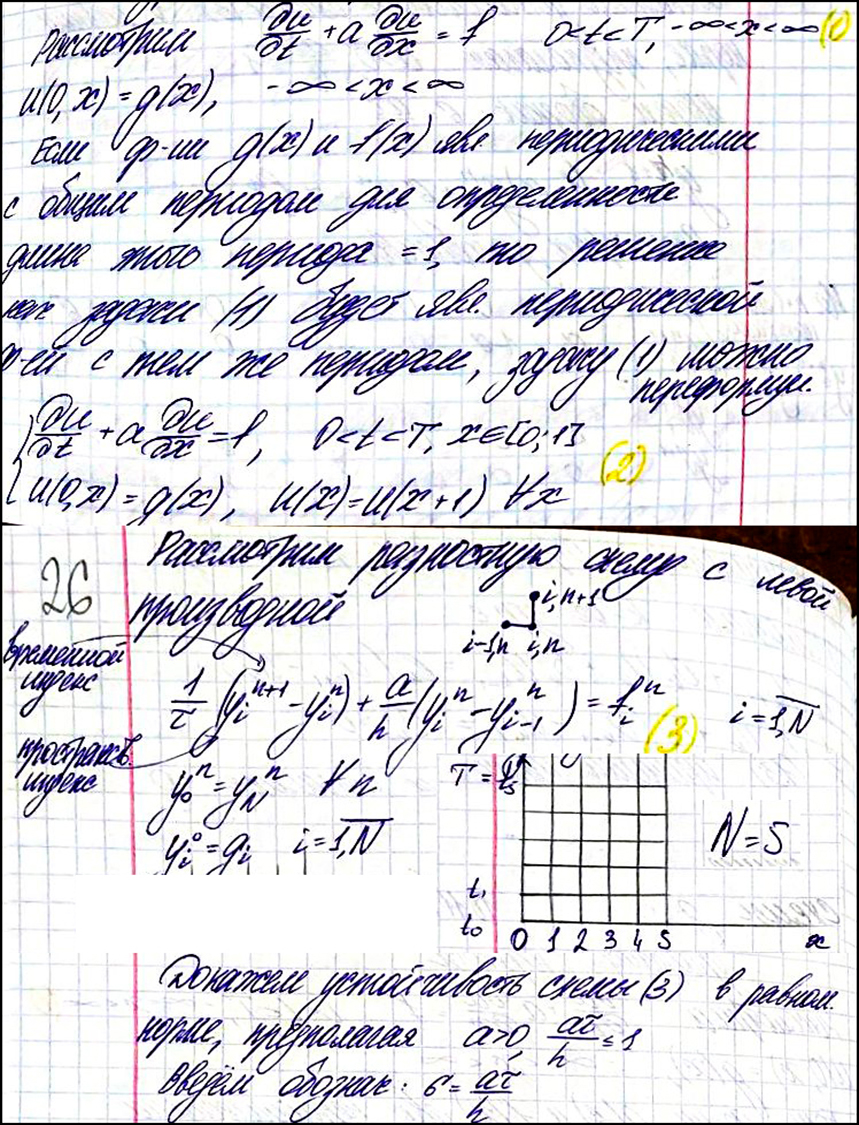 Рассмотрим ∂u/∂t + a ∂u/∂x = f 0<t<T, -∞<x<∞ (1)
u(0,x) = g(x), -∞<x<∞
Если ф-ии g(x) и f(x) явл. периодическими
с общим периодом для определенности
длина этого периода =1, то решение
задачи (1) будет явл. периодической
ф-ей с тем же периодом, задачу (1) можно
переформул.
∂u/∂t + a ∂u/∂x = f, 0<t<T, x∈[0;1]
(2)
u(0,x) = g(x), u(x) = u(x+1) ∀x
26
Рассмотрим разностную схему с левой
производной
i,n+1
i-1,n i,n
временной
индекс
1/τ (y_i^{n+1} - y_i^n) + a/h (y_i^n - y_{i-1}^n) = f_i^n i=1,N
(3)
пространств.
индекс
y_0^n = y_N^n ∀n
y_i^0 = g_i i=1,N
T = t_5
N=5
t_1
t_0
0 1 2 3 4 5 x
Докажем устойчивость схемы (3) в равном.
норме, предполагая a>0, aτ/h ≤ 1
Введём обознач: σ = aτ/h